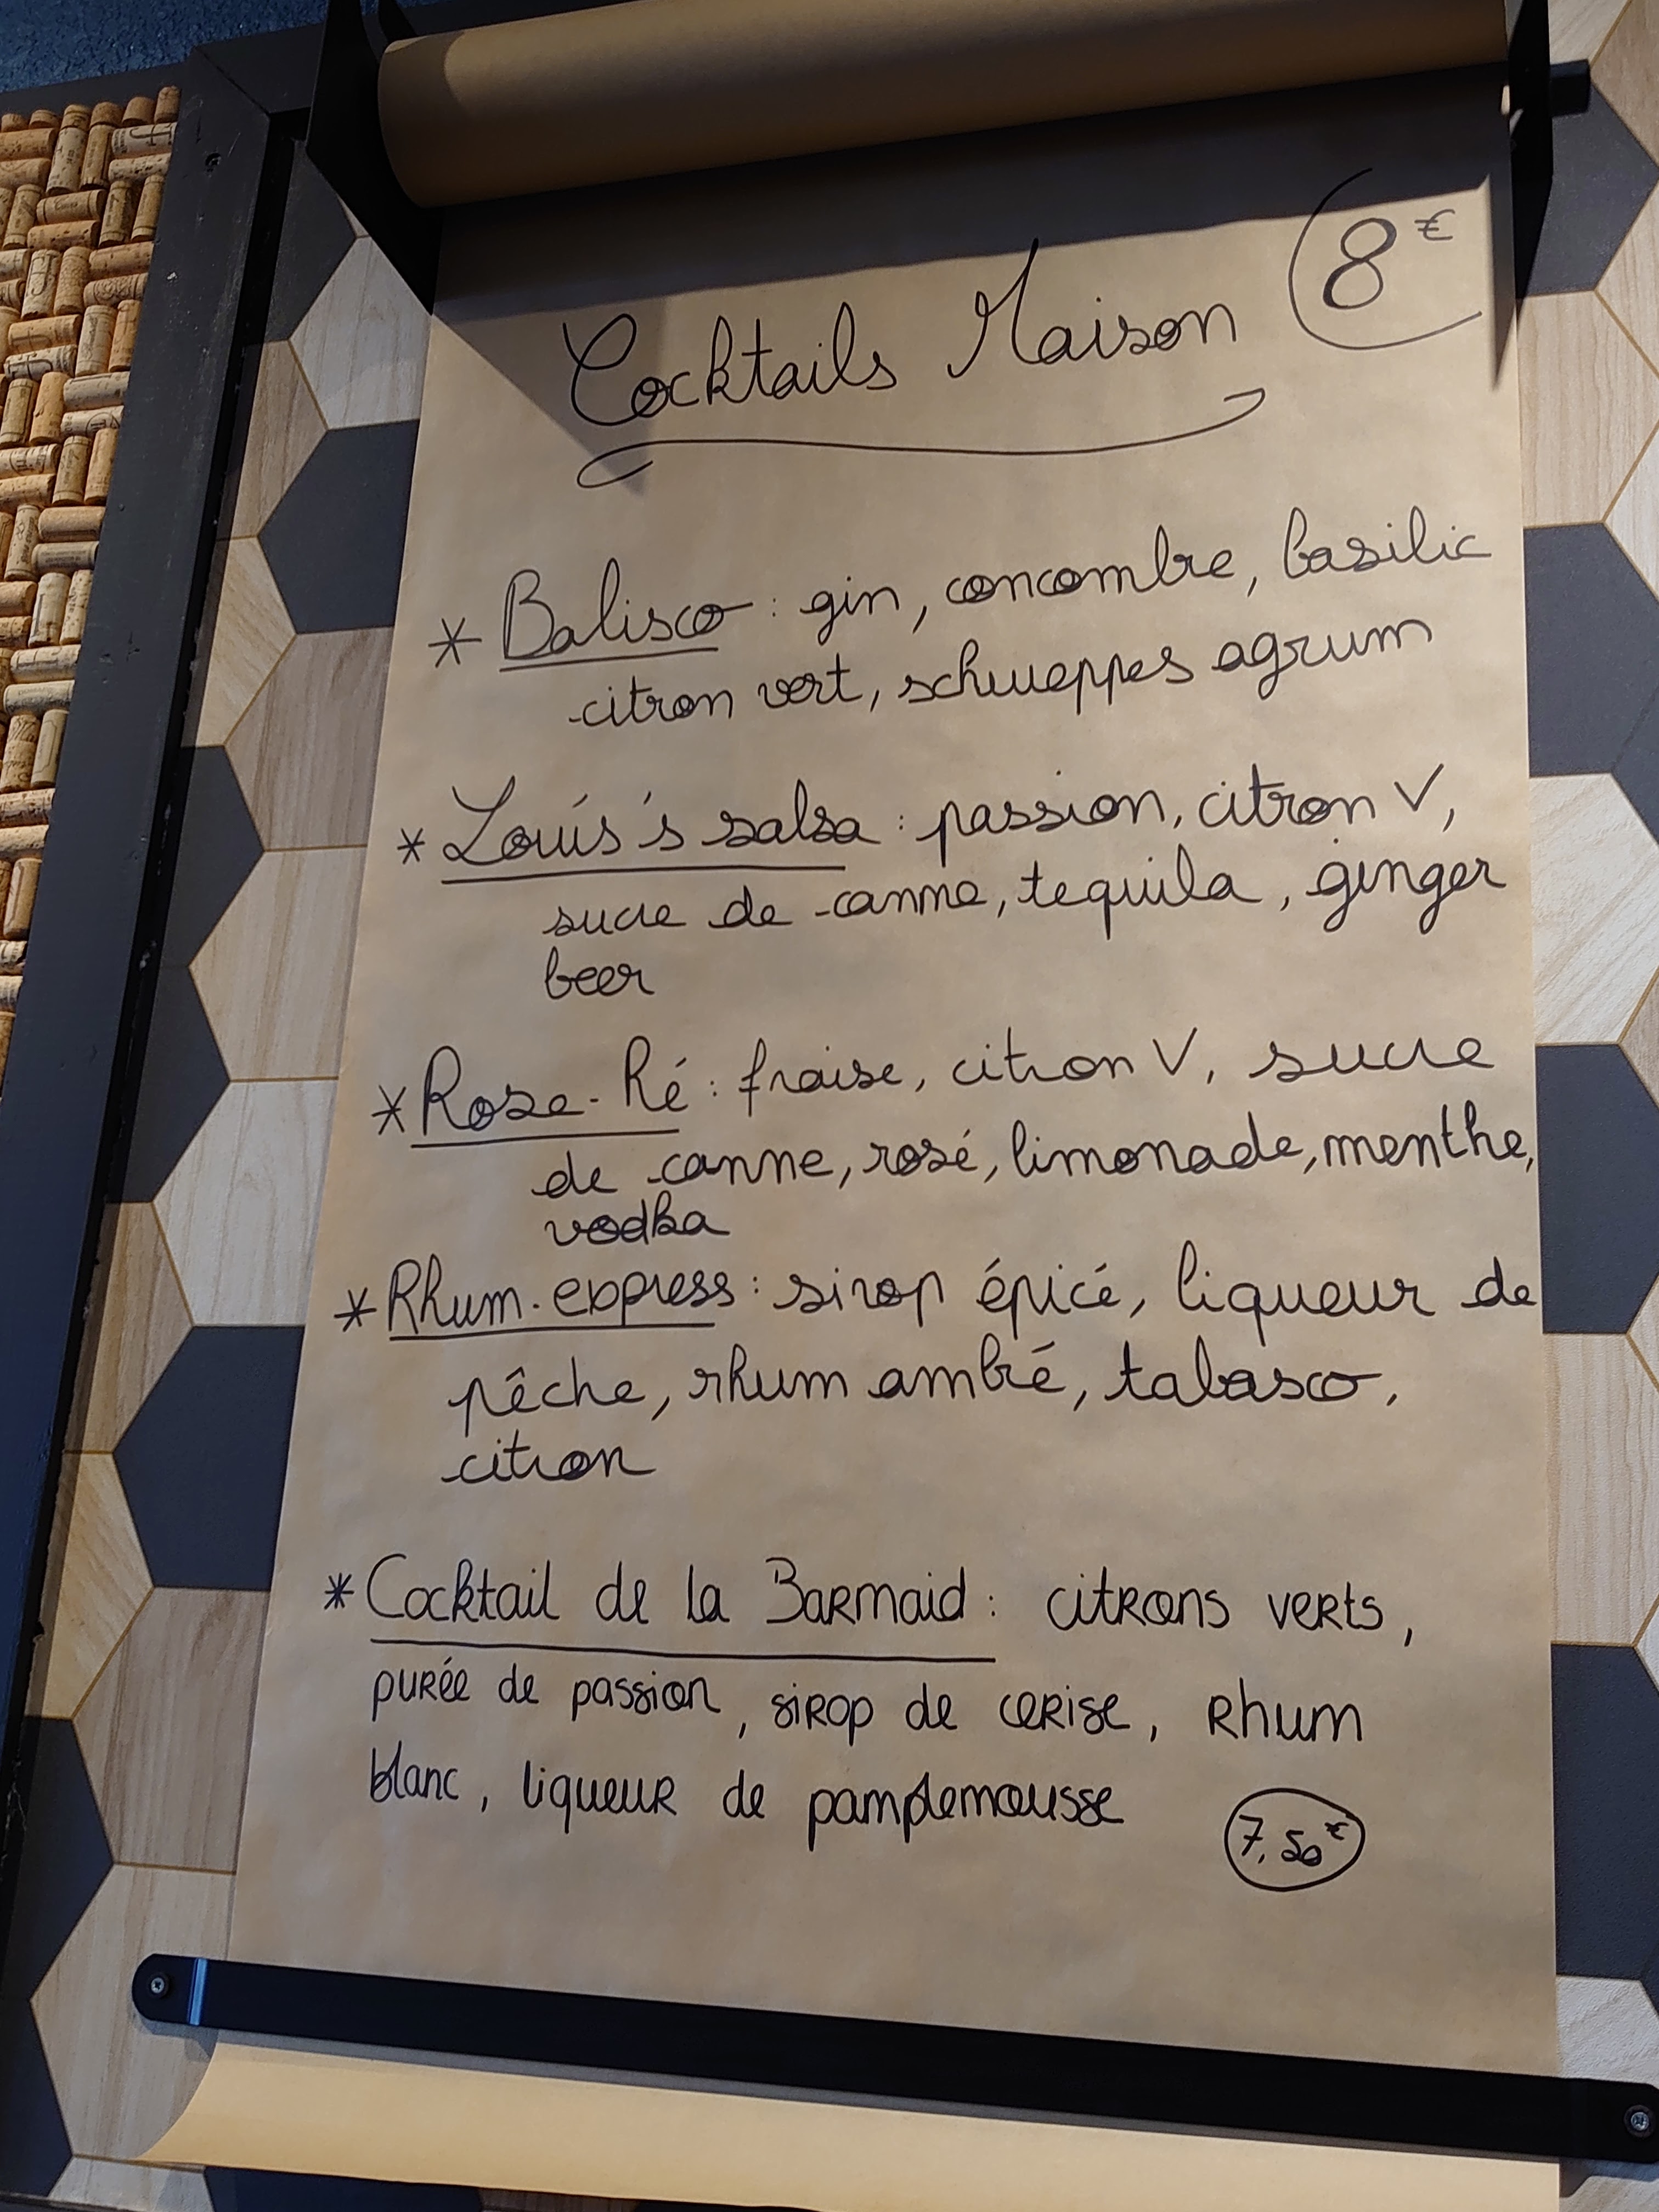 8€
Cocktails Maison
* Balisco : gin, concombre, basilic
citron vert, schweppes agrum
* Louis's salsa : passion, citron V,
sucre de canne, tequila, ginger
beer
* Rose-Ré : fraise, citron V, sucre
de canne, rosé, limonade, menthe,
vodka
* Rhum-express : sirop épicé, liqueur de
pêche, rhum ambré, tabasco,
citron
* Cocktail de la Barmaid : citrons verts,
purée de passion, sirop de cerise, Rhum
blanc, liqueur de pamplemousse
7,50€